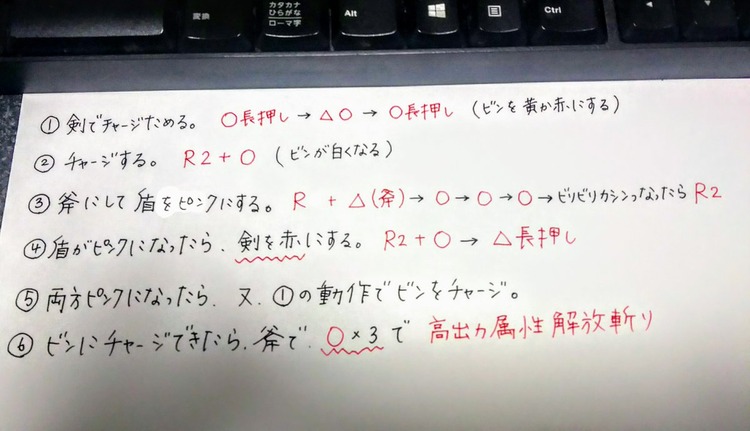 変換
カタカナ
ひらがな
ローマ字
Alt
Ctrl
①剣でチャージためる。 ○長押し→△○→○長押し (ビンを黄か赤にする)
②チャージする。 R2+○ (ビンが白くなる)
③斧にして盾をピンクにする。 R +△(斧)→○→○→○→ビリビリカシンっなったらR2
④盾がピンクになったら、剣を赤にする。 R2+○→△長押し
⑤両方ピンクになったら、又、①の動作でビンをチャージ。
⑥ビンにチャージできたら、斧で、○×3で 高出力属性解放斬り